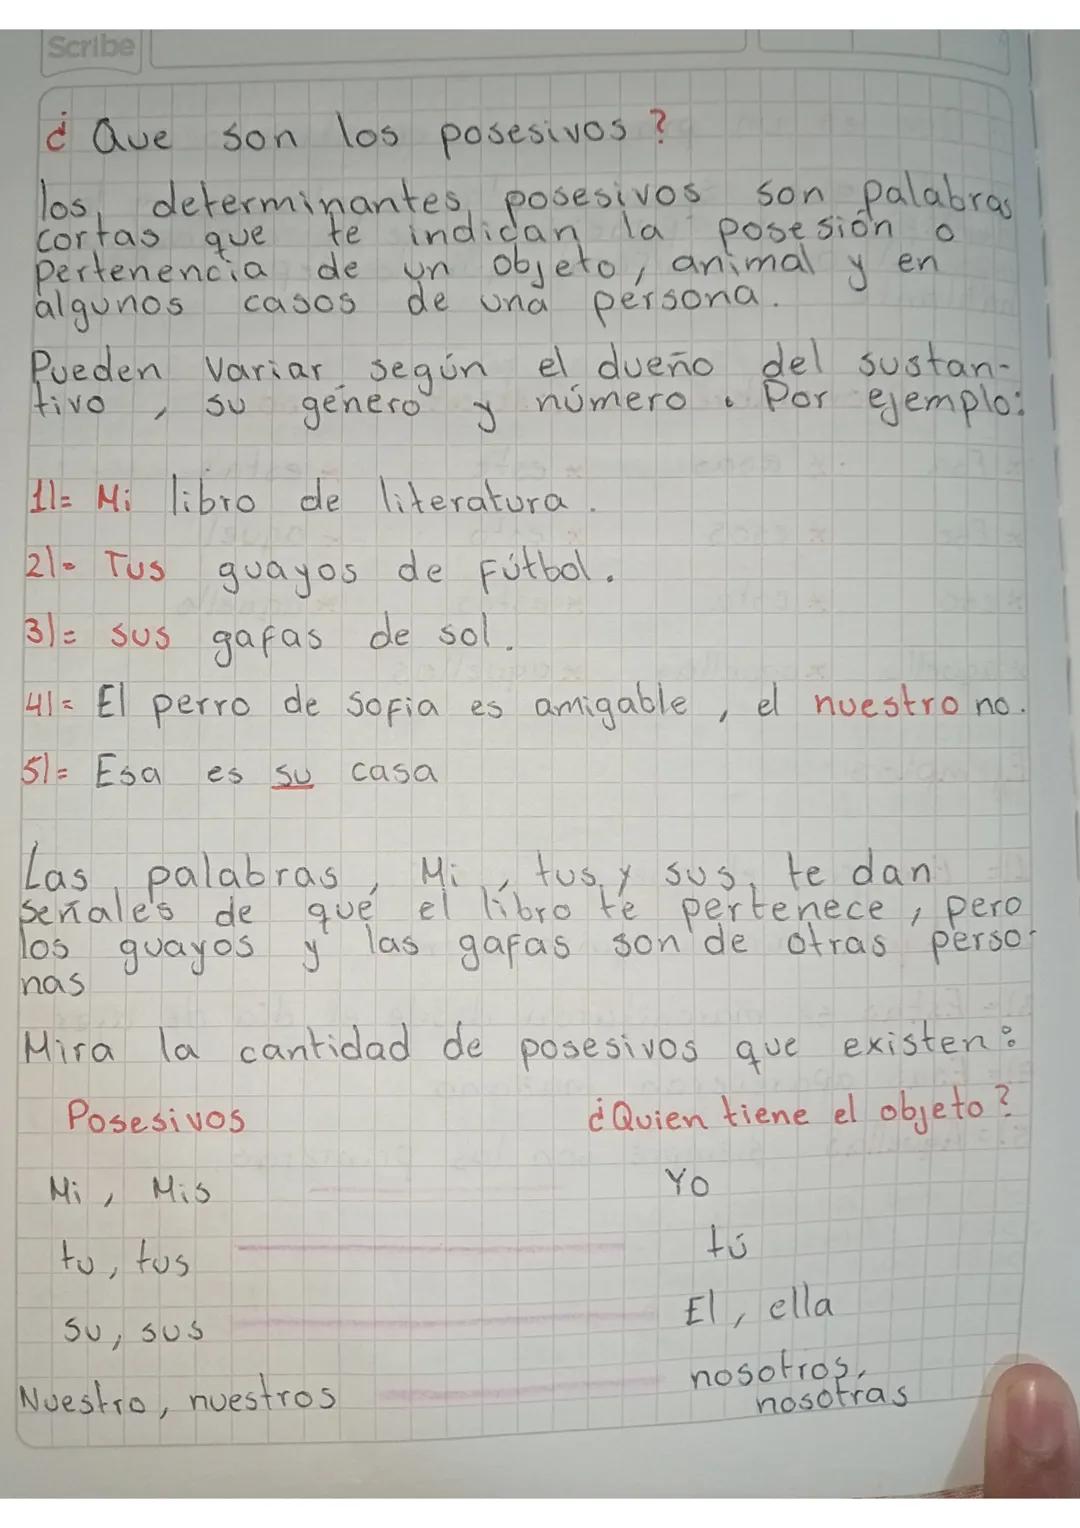 Scribe
¿Que son los posesivos?
los, determinantes, posesivos son palabras
cortas que te indican la posesión o
pertenencia de un objeto, animal y en
algunos casos de una persona.
Pueden variar según el dueño del sustan-
tivo, su género y número. Por ejemplo:
1)= Mi libro de literatura.
2)= Tus guayos de fútbol.
3)= sus gafas de sol.
4)= El perro de sofia es amigable, el nuestro no.
5)= Esa es su casa
Las palabras, Mi, tus, y sus, te dan
señales de qué el libro te pertenece, pero
los guayos y las gafas son de otras perso-
nas
Mira la cantidad de posesivos que existen:
Posesivos ¿Quien tiene el objeto?
Mi, Mis Yo
tu, tus tú
su, sus El, ella
Nuestro, nuestros nosotros,
nosotras